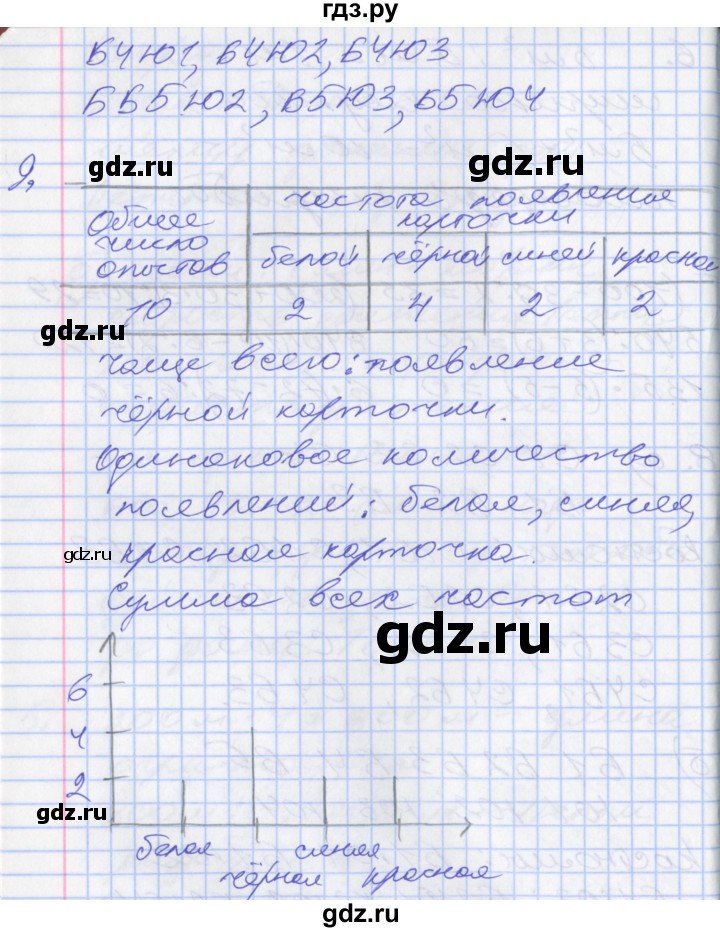 гдз.ру
Б4Ю1, Б4Ю2, Б4Ю3
ББ5Ю2, В5Ю3, Б5Ю4
gdz.ru
9.
gdz.ru
частота появления
карточки
Общее
число
опытов
белой чёрной синей красной
10 2 4 2 2
gdz.ru
чаще всего: появление
чёрной карточки.
Одинаковое количество
появлений: белая, синяя,
gdz.ru
красная карточка.
Сумма всех частот
gdz.ru
6
4
2
gdz.ru
белая синяя
чёрная красная
gdz.ru